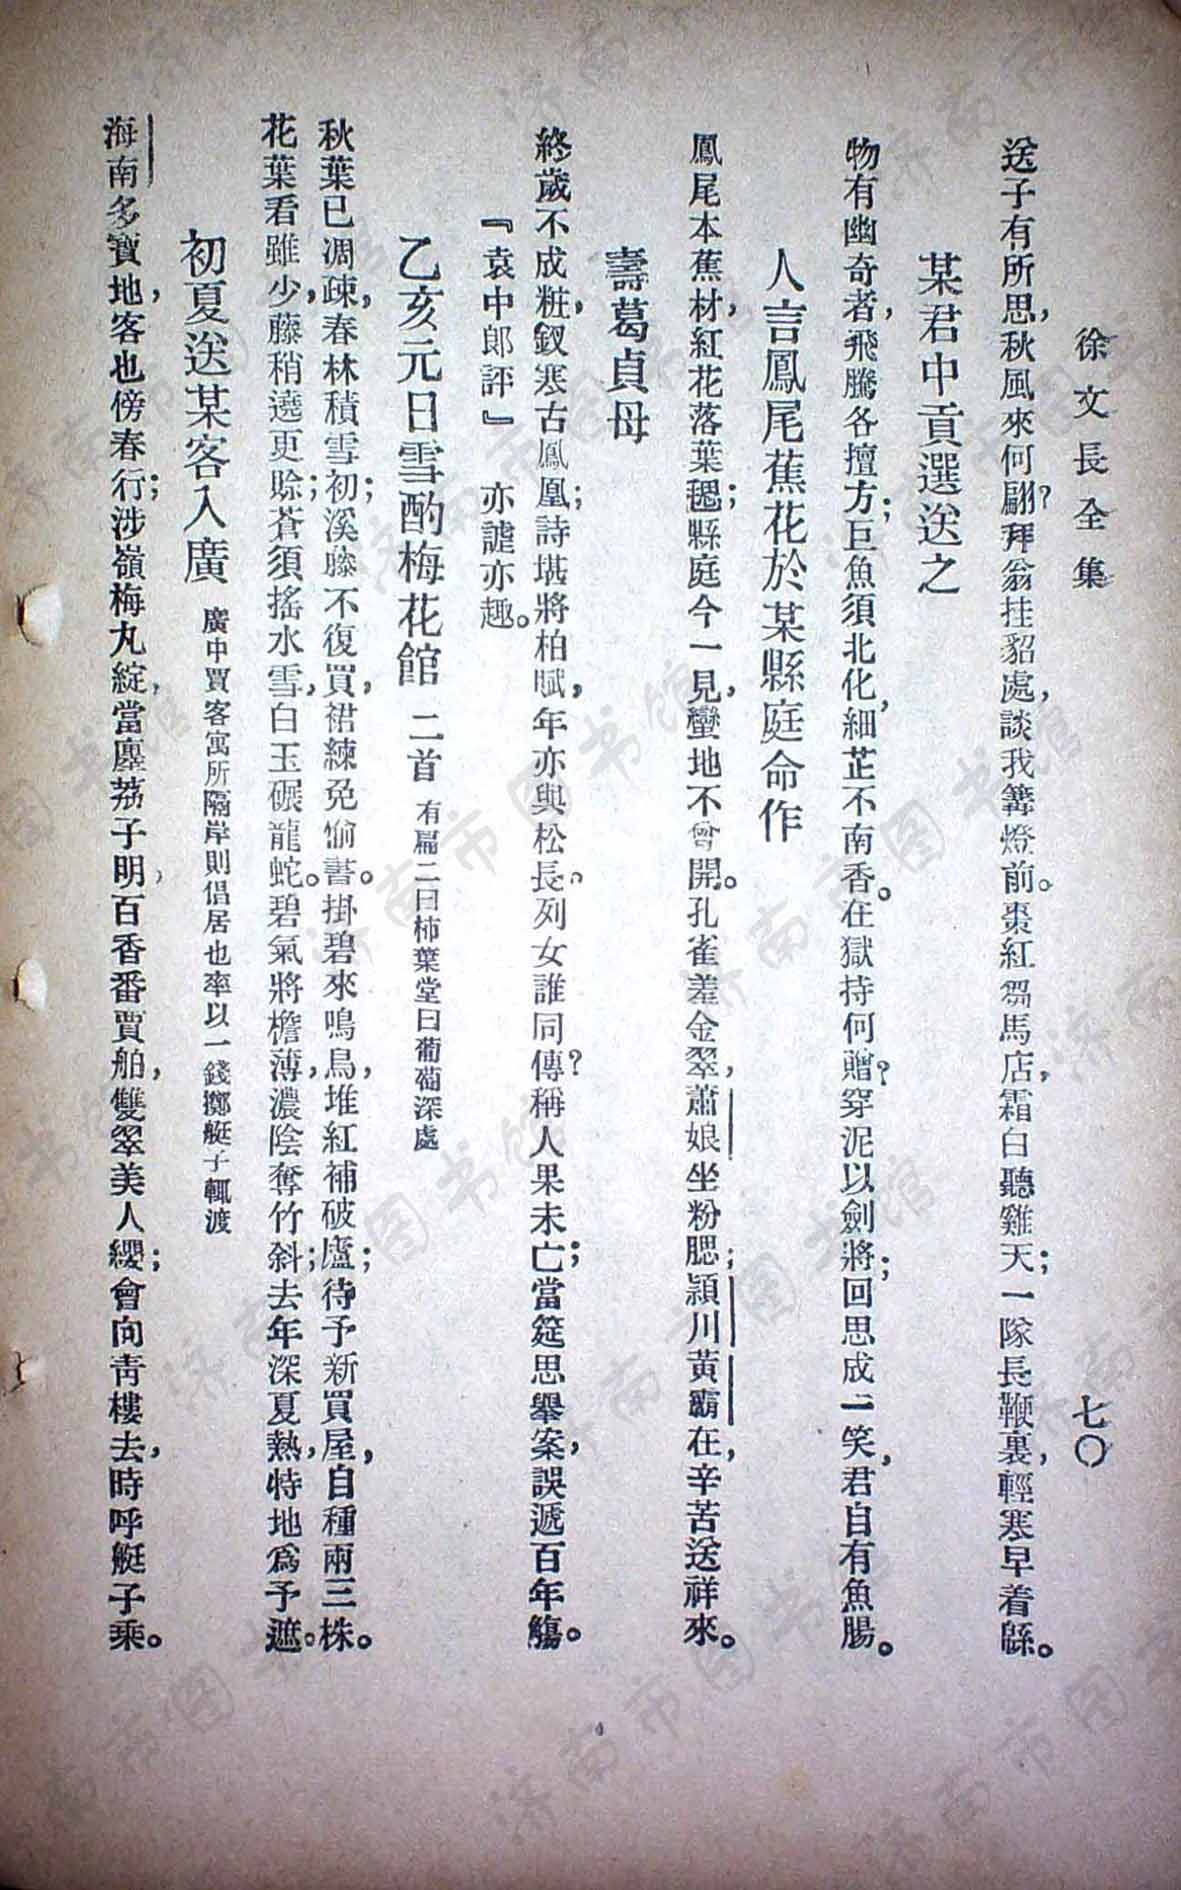 徐文長全集
七〇
送子有所思,秋風來何翩?拜翁挂貂處,談我篝燈前。棗紅芻馬店,霜白聽雞天;一隊長鞭裏,輕寒早着緜。
某君中貢選送之
物有幽奇者,飛騰各擅方;巨魚須北化,細芷不南香。在獄持何贈?穿泥以劍將;回思成一笑,君自有魚腸。
人言鳳尾蕉花於某縣庭命作
鳳尾本蕉材,紅花落葉毸;縣庭今一見,蠻地不曾開。孔雀差金翠,蕭娘坐粉腮;潁川黃霸在,辛苦送祥來。
壽葛貞母
終歲不成粧,釵寒古鳳凰;詩堪將柏賦,年亦與松長。列女誰同傳?稱人果未亡;當筵思舉案,誤遞百年觴。
『袁中郞評』亦謔亦趣。
乙亥元日雪酌梅花館 二首 有扁二曰柿葉堂曰葡萄深處
秋葉已凋疎,春林積雪初;溪藤不復買,裙練免偷書。掛碧來鳴鳥,堆紅補破廬;待予新買屋,自種兩三株。
花葉看雖少,藤稍遶更賒;蒼須搖水雪,白玉碾龍蛇。碧氣將檐薄,濃陰奪竹斜;去年深夏熱,特地爲予遮。
初夏送某客入廣 廣中買客寓所隔岸則倡居也率以一錢擲艇子輒渡
海南多寶地,客也傍春行;涉嶺梅丸綻,當廛荔子明,百香番賈舶,雙翠美人纓;會向靑樓去,時呼艇子乘。